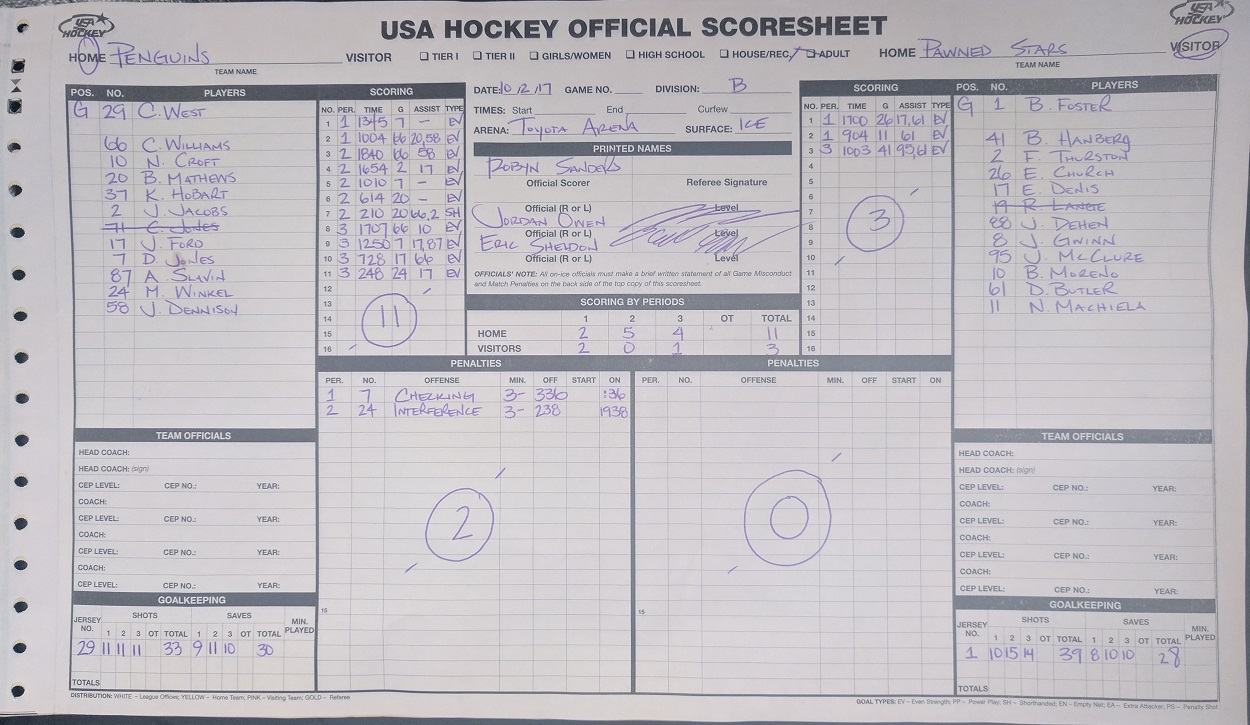 USA HOCKEY
USA HOCKEY OFFICIAL SCORESHEET
USA HOCKEY
HOME PENGUINS VISITOR ☐ TIER I ☐ TIER II ☐ GIRLS/WOMEN ☐ HIGH SCHOOL ☐ HOUSE/REC ☐ ADULT HOME PAWNED STARS VISITOR
TEAM NAME TEAM NAME
POS. NO. PLAYERS
G 29 C. WEST
66 C. WILLIAMS
10 N. CROFT
20 B. MATHEWS
37 K. HOBART
2 J. JACOBS
71 C. JONES
17 J. FORD
7 D. JONES
87 A. SLAVIN
24 M. WINKEL
58 J. DENNISON
SCORING
NO. PER. TIME G ASSIST TYPE
1 1 1345 7 – EV
2 1 1004 66 20,58 EV
3 2 1840 66 58 EV
4 2 1654 2 17 EV
5 2 1010 7 – EV
6 2 614 20 – EV
7 2 210 20 66,2 SH
8 3 1707 66 10 EV
9 3 1250 7 17,87 EV
10 3 728 17 66 EV
11 3 248 24 17 EV
12
13
14
15
16
11
DATE: 10/2/17 GAME NO. DIVISION: B
TIMES: Start End Curfew
ARENA: TOYOTA ARENA SURFACE: ICE
PRINTED NAMES
ROBYN SANDERS
Official Scorer Referee Signature
Official (R or L) Level
JORDAN OWEN
Official (R or L) Level
ERIC SHELDON
Official (R or L) Level
OFFICIALS' NOTE: All on-ice officials must make a brief written statement of all Game Misconduct
and Match Penalties on the back side of the top copy of this scoresheet.
SCORING BY PERIODS
1 2 3 OT TOTAL
HOME 2 5 4 11
VISITORS 2 0 1 3
SCORING
NO. PER. TIME G ASSIST TYPE
1 1 1700 26 17,61 EV
2 1 904 11 61 EV
3 3 1003 41 95,61 EV
4
5
6
7
8
9
10
11
12
13
14
15
16
3
POS. NO. PLAYERS
G 1 B. FOSTER
41 B. HANBERG
2 F. THURSTON
26 E. CHURCH
17 E. DENIS
19 R. LANGE
88 J. DEHEN
8 J. GWINN
95 J. MCCLURE
10 B. MORENO
61 D. BUTLER
11 N. MACHIELA
PENALTIES
PER. NO. OFFENSE MIN. OFF START ON
1 7 CHECKING 3- 336 :36
2 24 INTERFERENCE 3- 238 1938
2
15
PENALTIES
PER. NO. OFFENSE MIN. OFF START ON
0
15
TEAM OFFICIALS
HEAD COACH:
HEAD COACH: (sign)
CEP LEVEL: CEP NO.: YEAR:
COACH:
CEP LEVEL: CEP NO.: YEAR:
COACH:
CEP LEVEL: CEP NO.: YEAR:
COACH:
CEP LEVEL: CEP NO.: YEAR:
GOALKEEPING
JERSEY NO. SHOTS SAVES MIN. PLAYED
1 2 3 OT TOTAL 1 2 3 OT TOTAL
29 11 11 11 33 9 11 10 30
TOTALS
TEAM OFFICIALS
HEAD COACH:
HEAD COACH: (sign)
CEP LEVEL: CEP NO.: YEAR:
COACH:
CEP LEVEL: CEP NO.: YEAR:
COACH:
CEP LEVEL: CEP NO.: YEAR:
COACH:
CEP LEVEL: CEP NO.: YEAR:
GOALKEEPING
JERSEY NO. SHOTS SAVES MIN. PLAYED
1 2 3 OT TOTAL 1 2 3 OT TOTAL
1 10 15 14 39 8 10 10 28
TOTALS
DISTRIBUTION: WHITE – League Offices; YELLOW – Home Team; PINK – Visiting Team; GOLD – Referee
GOAL TYPES: EV – Even Strength; PP – Power Play; SH – Shorthanded; EN – Empty Net; EA – Extra Attacker; PS – Penalty Shot